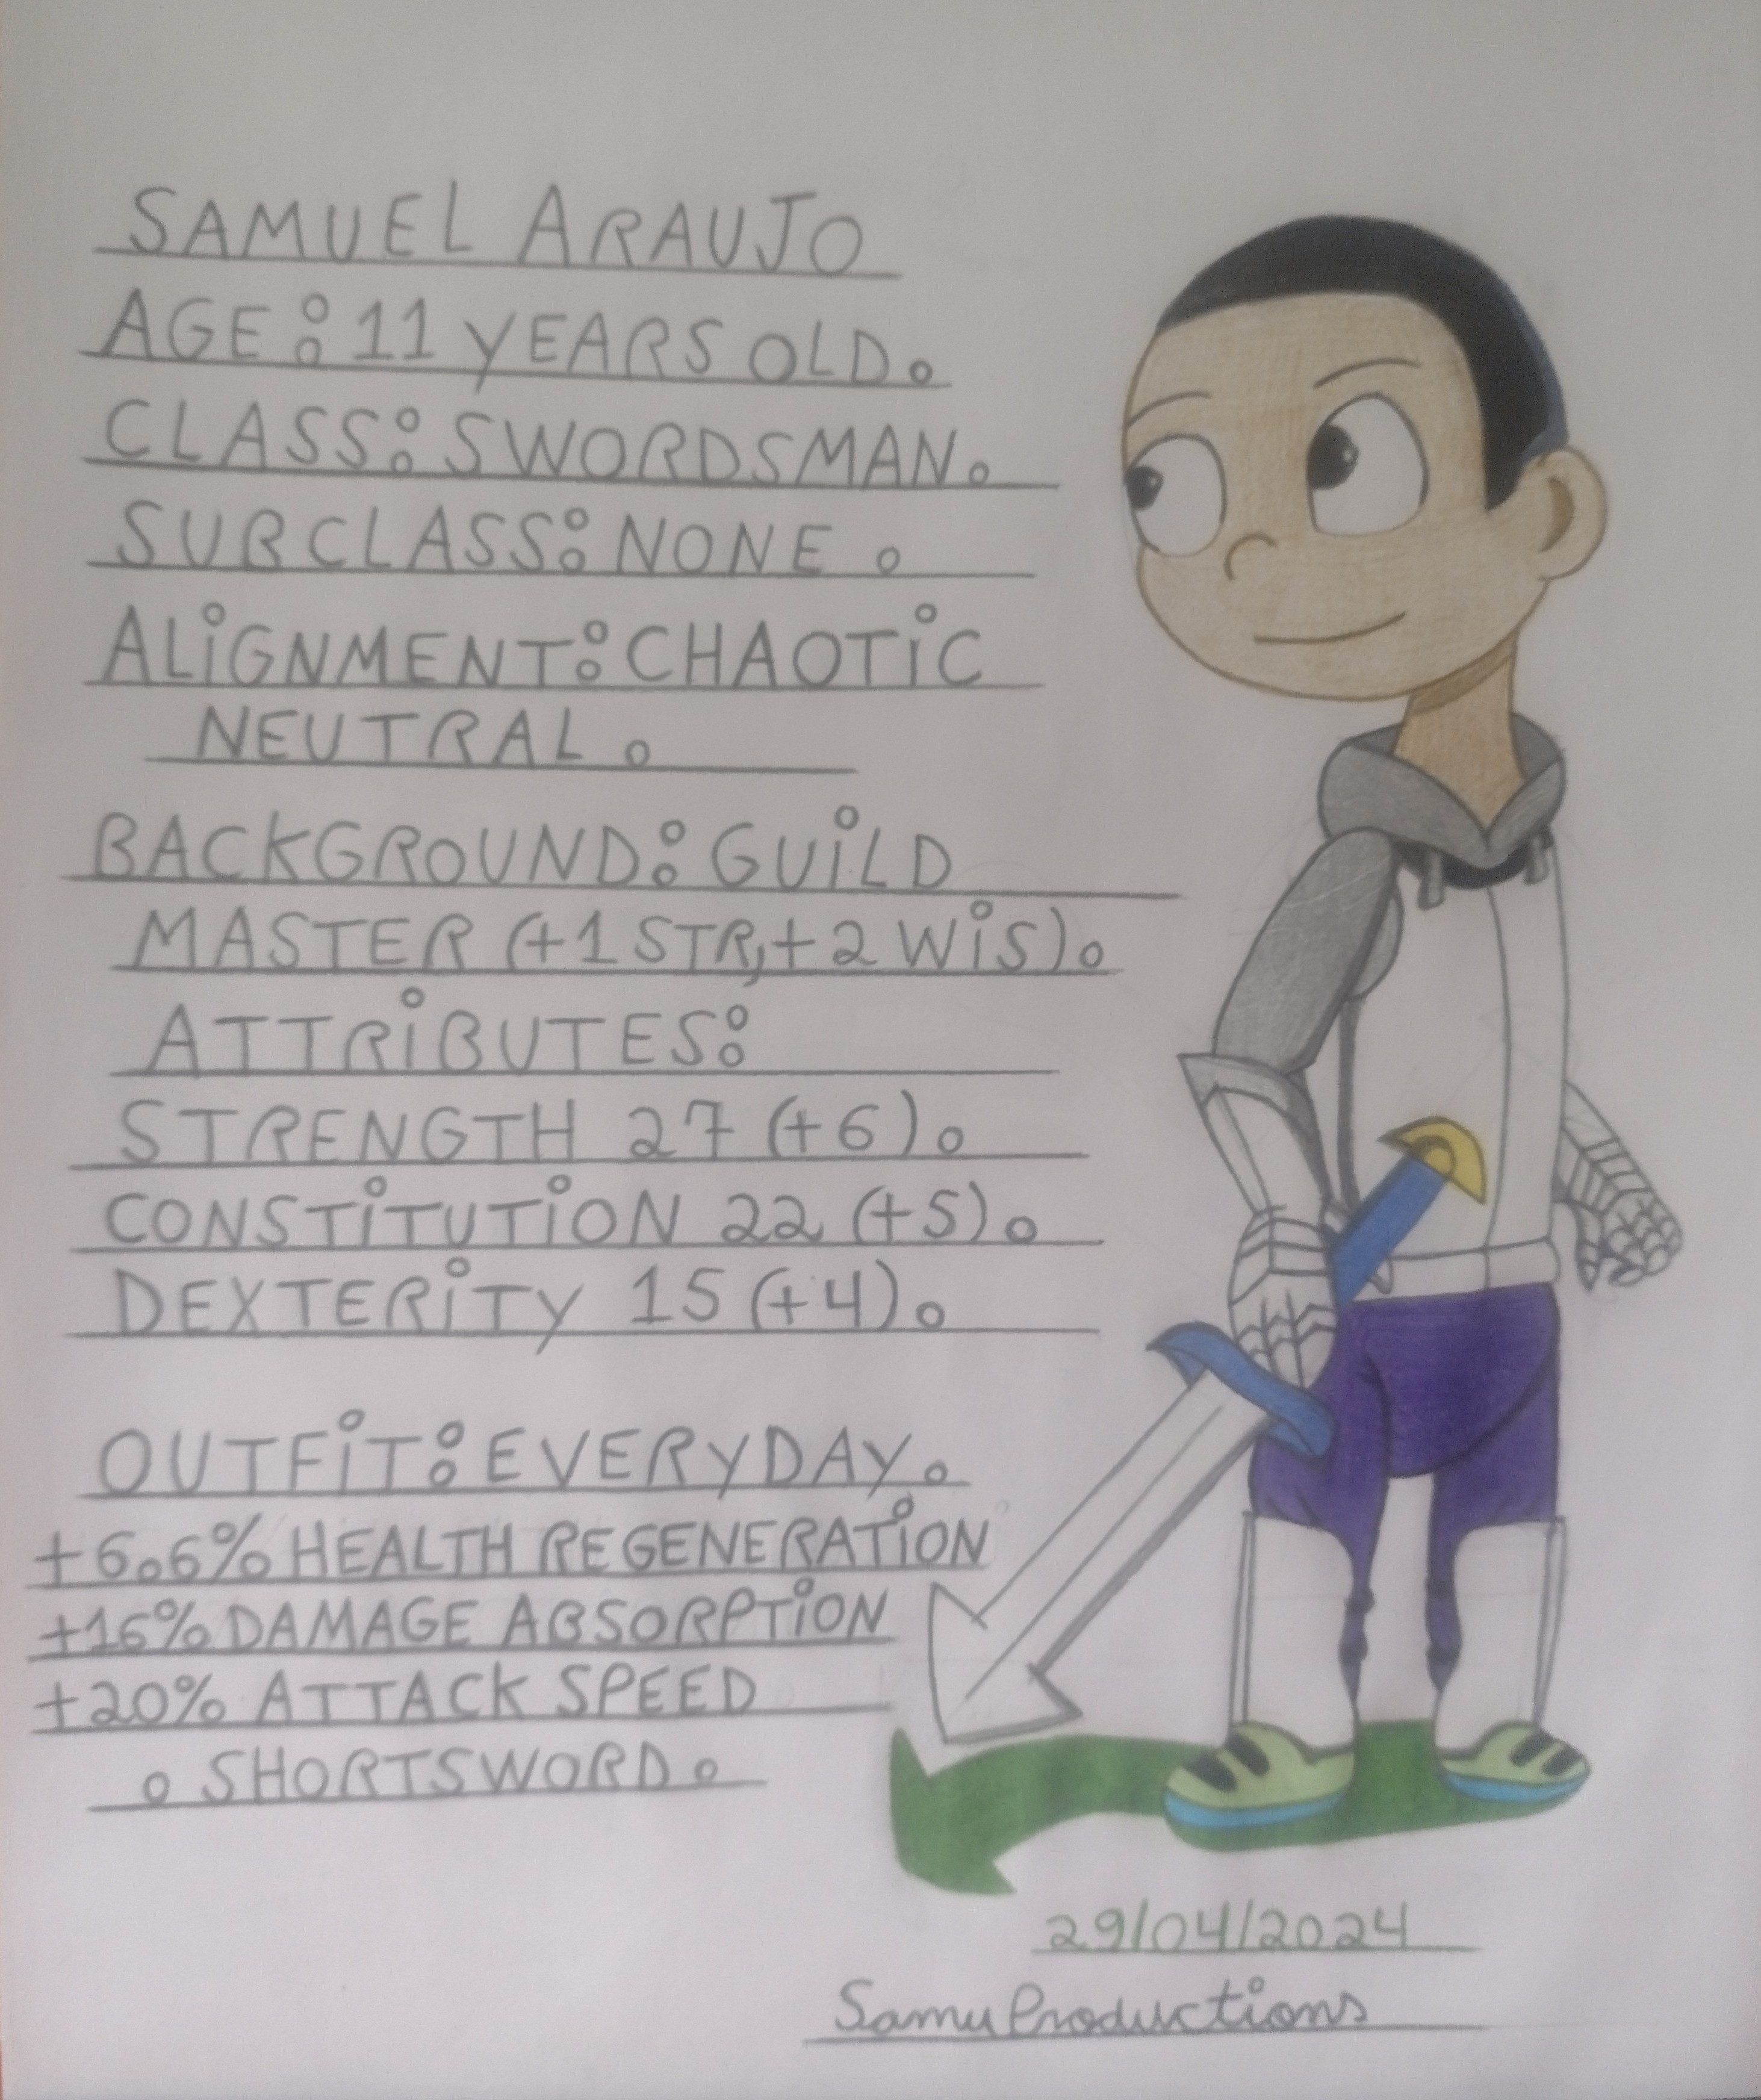 SAMUEL ARAUJO
AGE: 11 YEARS OLD.
CLASS: SWORDSMAN.
SUBCLASS: NONE.
ALiGNMENT: CHAOTiC
NEUTRAL.
BACKGROUND: GUiLD
MASTER (+1 STR,+2 WiS).
ATTRiBUTES:
STRENGTH 27 (+6).
CONSTiTUTiON 22 (+5).
DEXTERiTY 15 (+4).
OUTFiT: EVERYDAY.
+6.6% HEALTH REGENERATiON
+16% DAMAGE ABSORPTiON
+20% ATTACK SPEED
. SHORTSWORD.
29/04/2024
SamuProductions